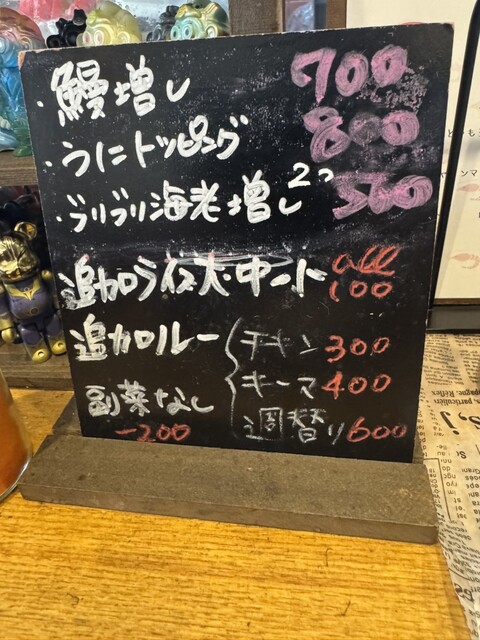 ・鰻増し 700
・うにトッピング 800
・プリプリ海老増し 2つ 500
追加ライス大・中・小 all 100
追加ルー チキン 300
キーマ 400
週替り 600
副菜なし
-200